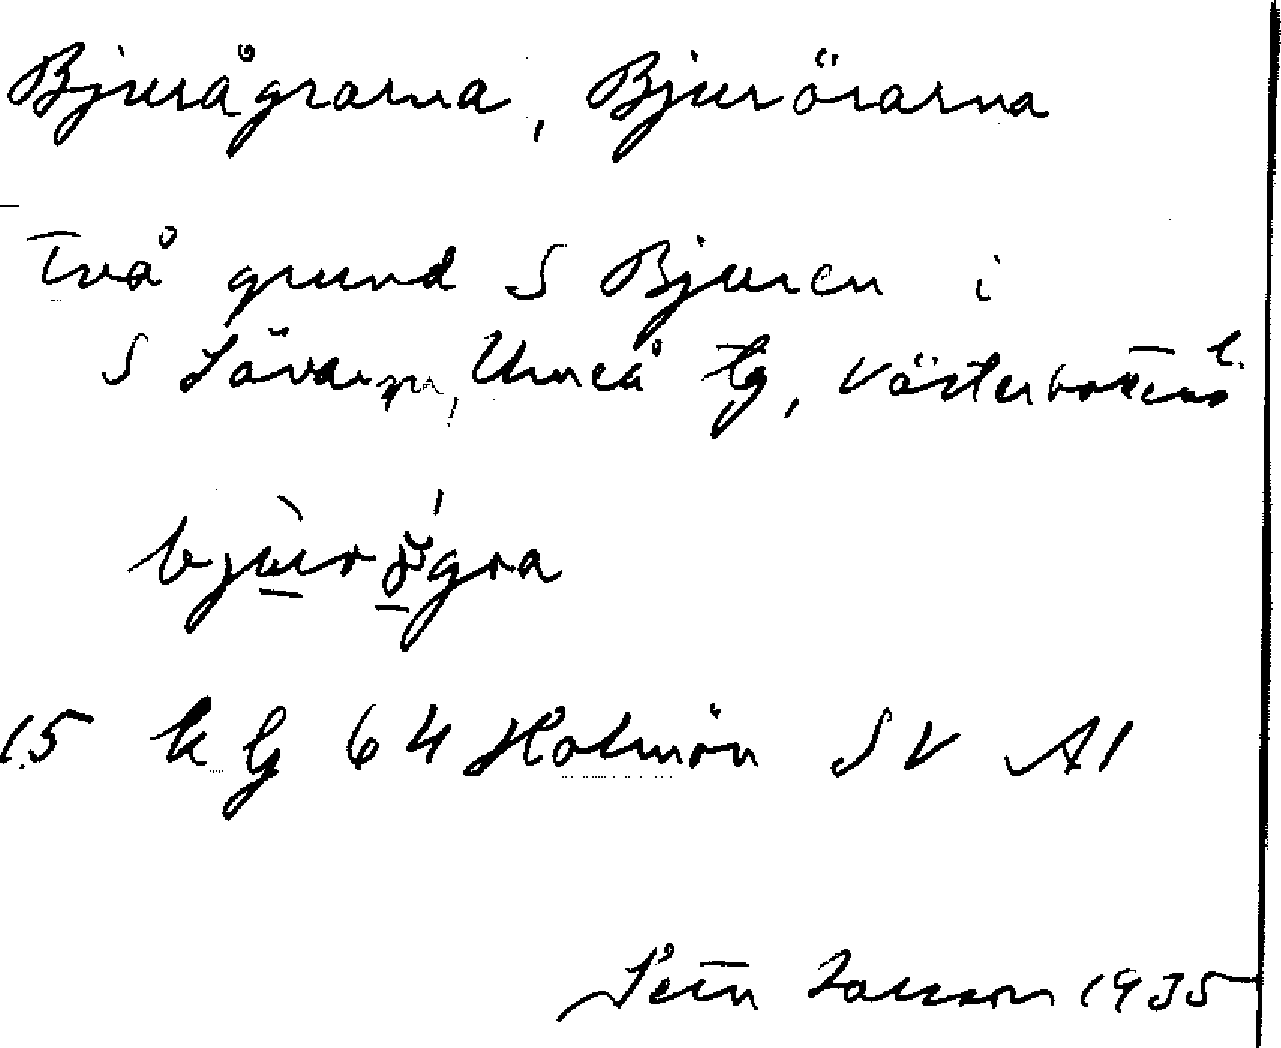 Bjurågrarna, Bjurörarna
Två grund S Bjuren i
S Sävar sn, Umeå tg, Västerbottens l.
bjur ögra
15 k bg 64 Holmön SV A1
1935